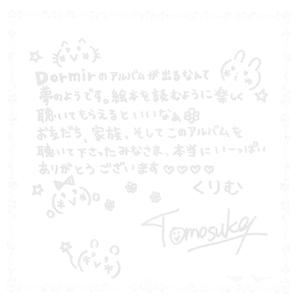 Dormirのアルバムが出るなんて
夢のようです。絵本を読むように楽しく
聴いてもらえるといいなぁ
お友だち、家族、そしてこのアルバムを
聴いて下さったみなさま、本当にいーっぱい
ありがとうございます♡♡♡♡
くりむ
Tomosuke